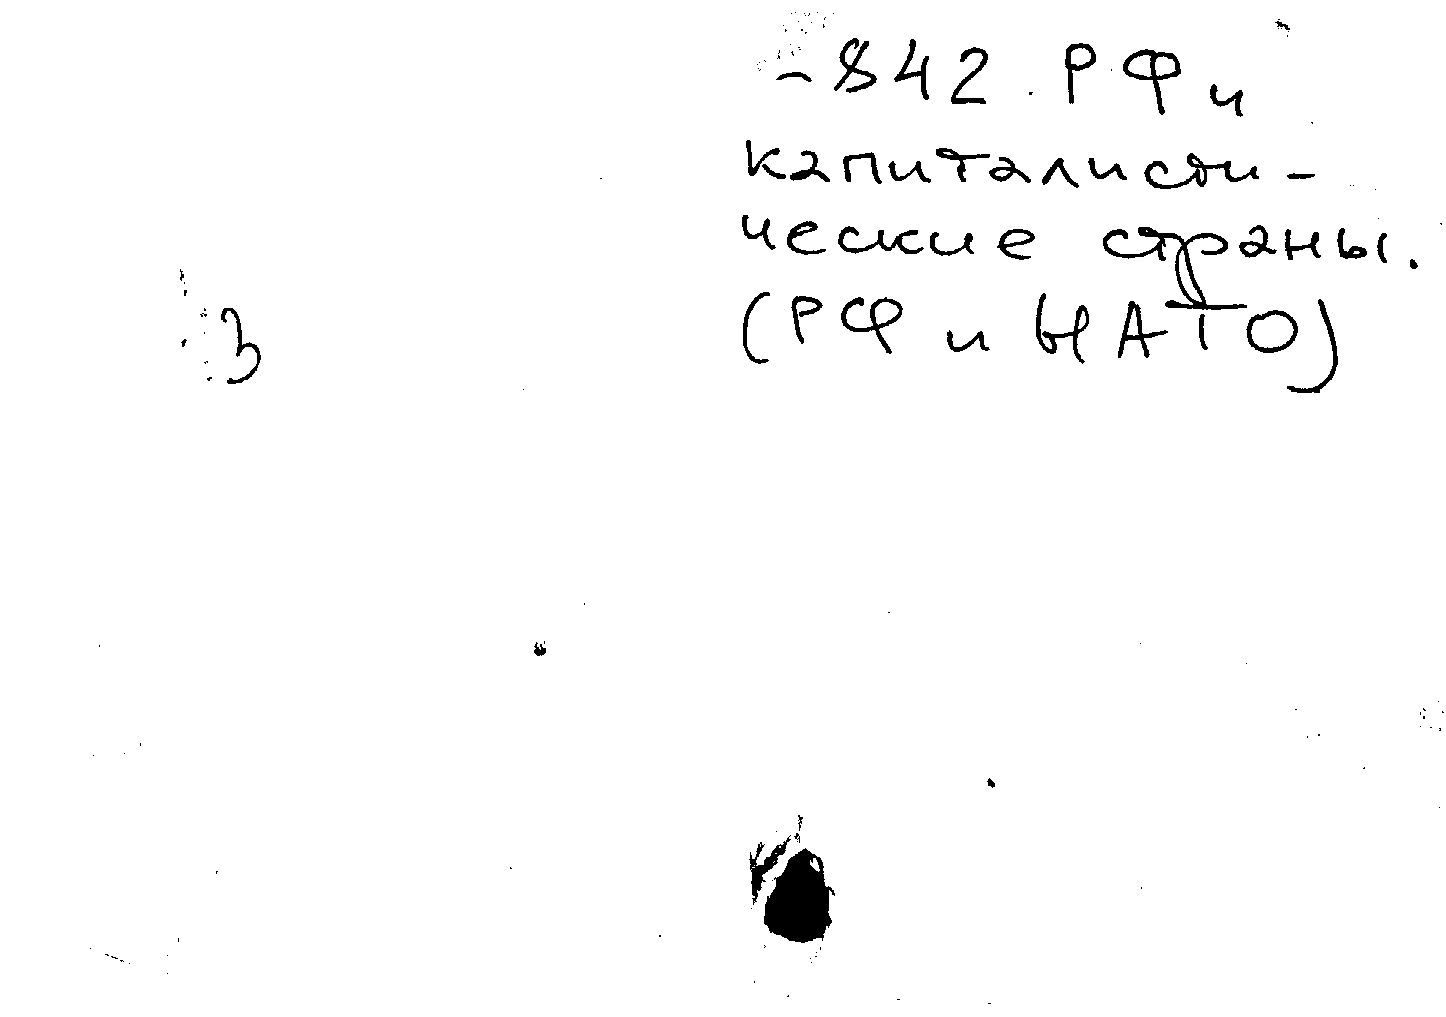 - 842. РФ и
капиталисти-
ческие страны.
(РФ и НАТО)
3